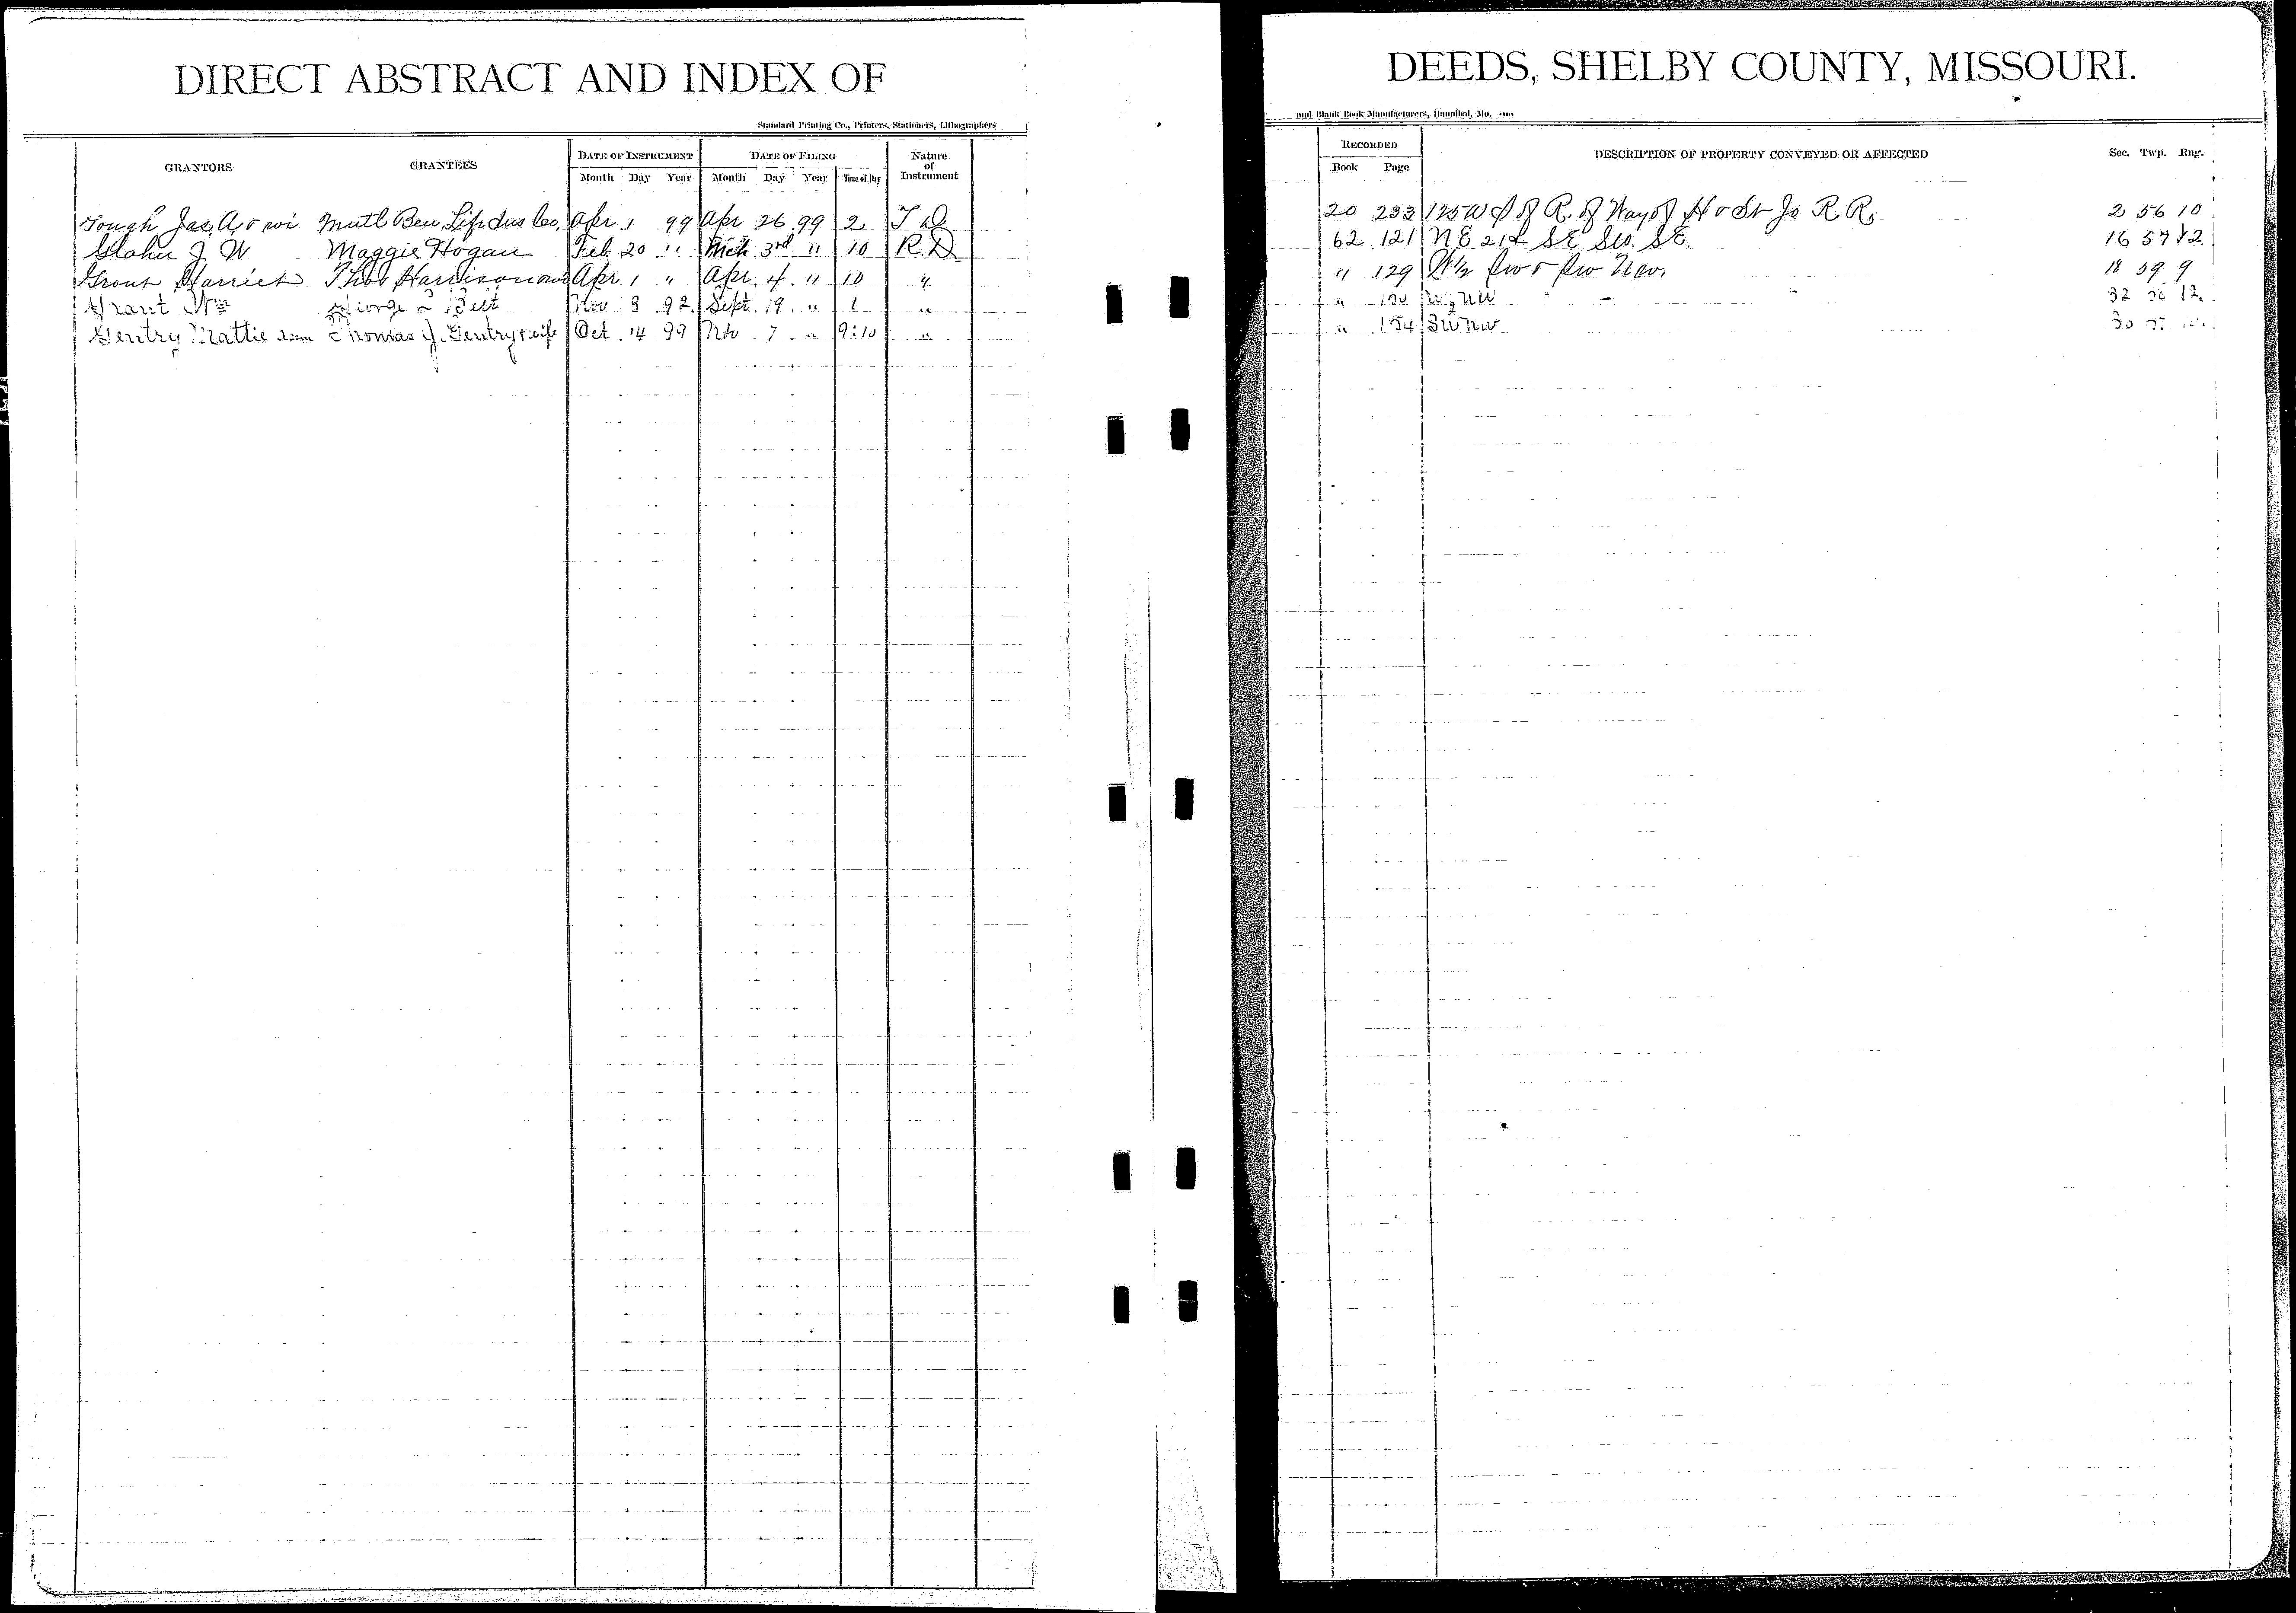 DIRECT ABSTRACT AND INDEX OF
DEEDS, SHELBY COUNTY, MISSOURI.
Standard Printing Co., Printers, Stationers, Lithographers
and Blank Book Manufacturers, Hannibal, Mo.
GRANTORS GRANTEES DATE OF INSTRUMENT DATE OF FILING Nature of Instrument
Month Day Year Month Day Year Time of Day
RECORDED DESCRIPTION OF PROPERTY CONVEYED OR AFFECTED Sec. Twp. Rng.
Book Page
Gough Jas. A, & wi Mutl Ben Life Ins Co. Apr 1 99 Apr 26 99 2 T D 20 233 of R. of Way of H & St Jo R R. 2 56 10
J. W. Maggie Hogan Feb 20 " Mch 3rd " 10 R.D 62 121 N E. 214 SE SW. SE. 16 57 12
Harriet Thos Harrison Apr. 1 " Apr. 4 " 10 " " 129 18 59 9
Grant Wm George Nov 3 92 Sept. 19 " 1 " " 32 12
Gentry Mattie Thomas J. Gentry & wife Oct. 14 99 Nov 7 " 9:10 " " 154 SW NW 30